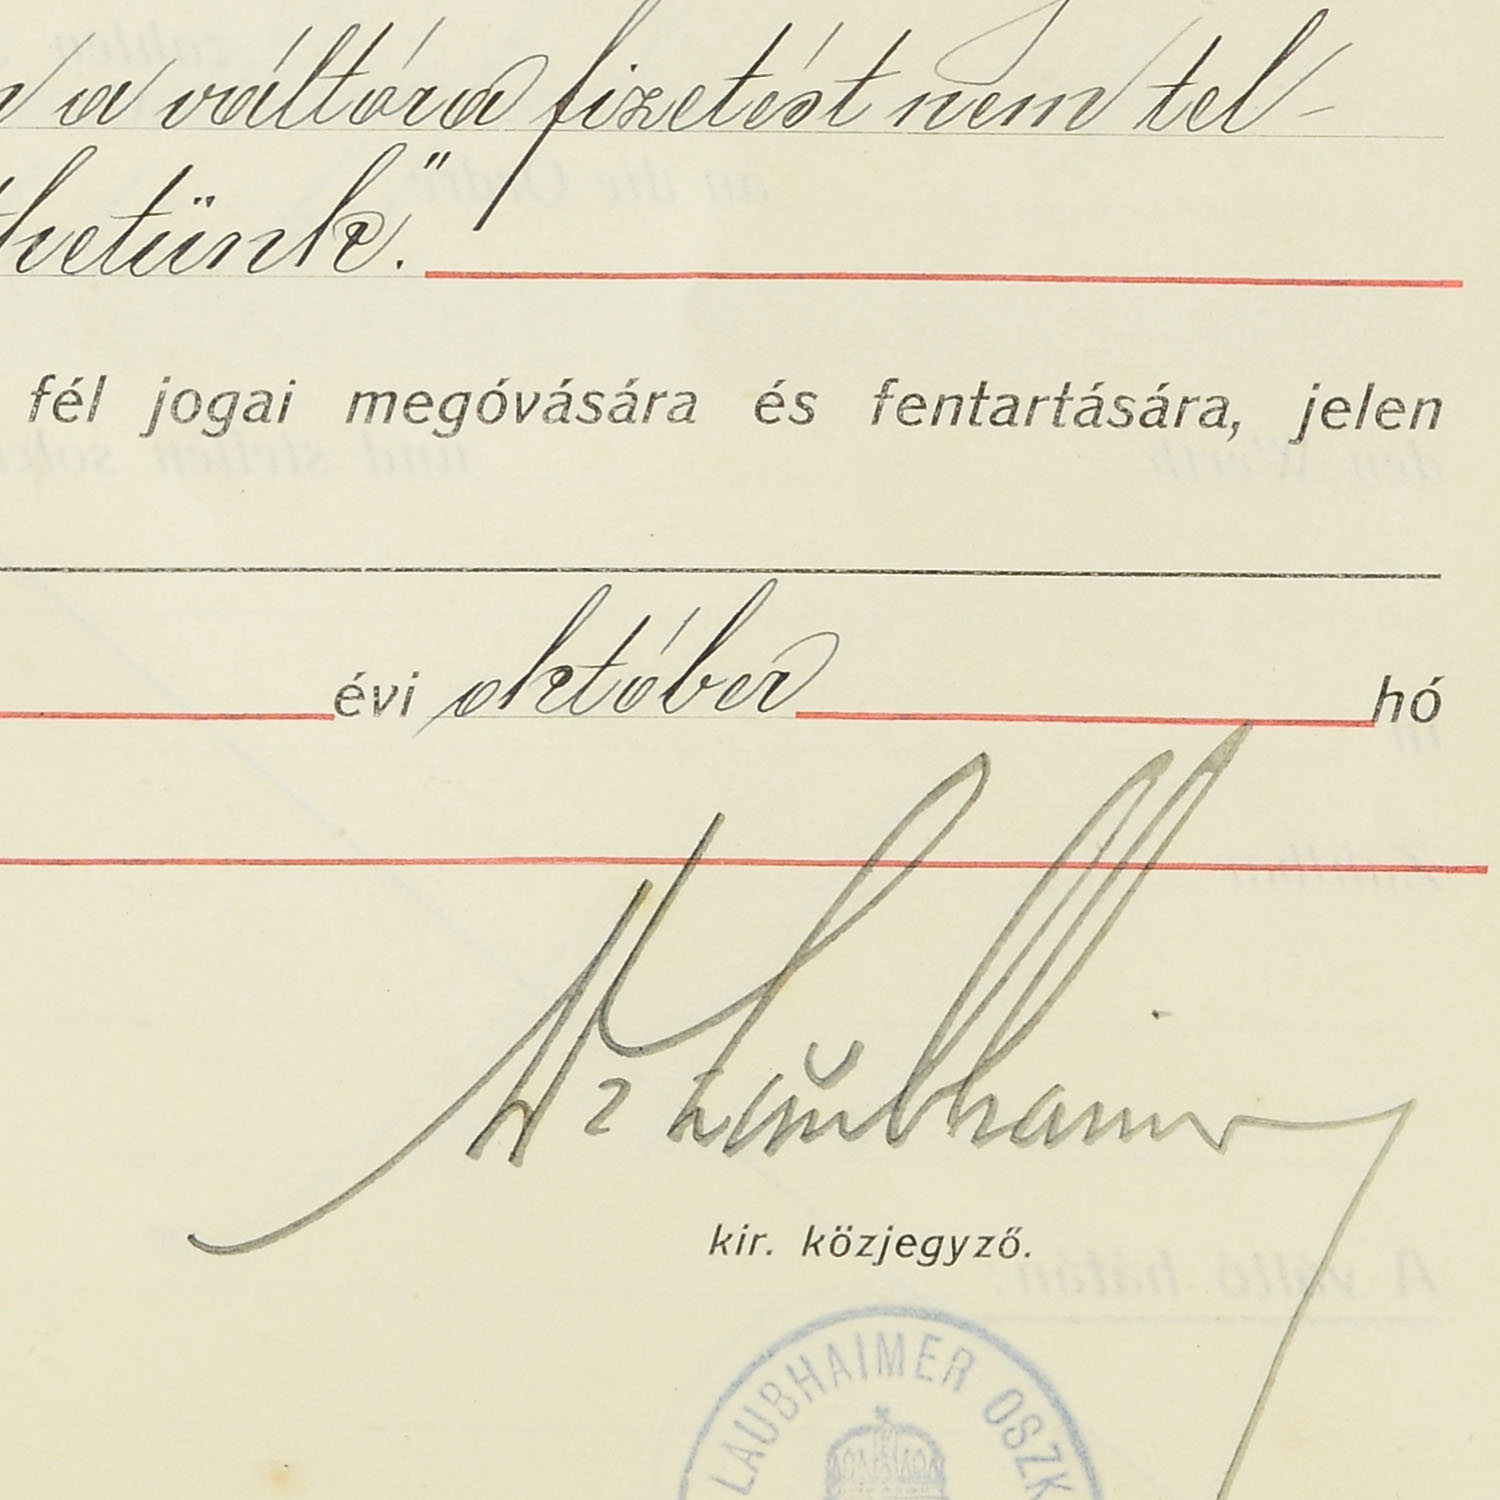 a váltóra fizetést nem tel-
hetünk."
fél jogai megóvására és fentartására, jelen
évi október hó
Dr Laubhaimer
kir. közjegyző.
LAUBHAIMER OSZK